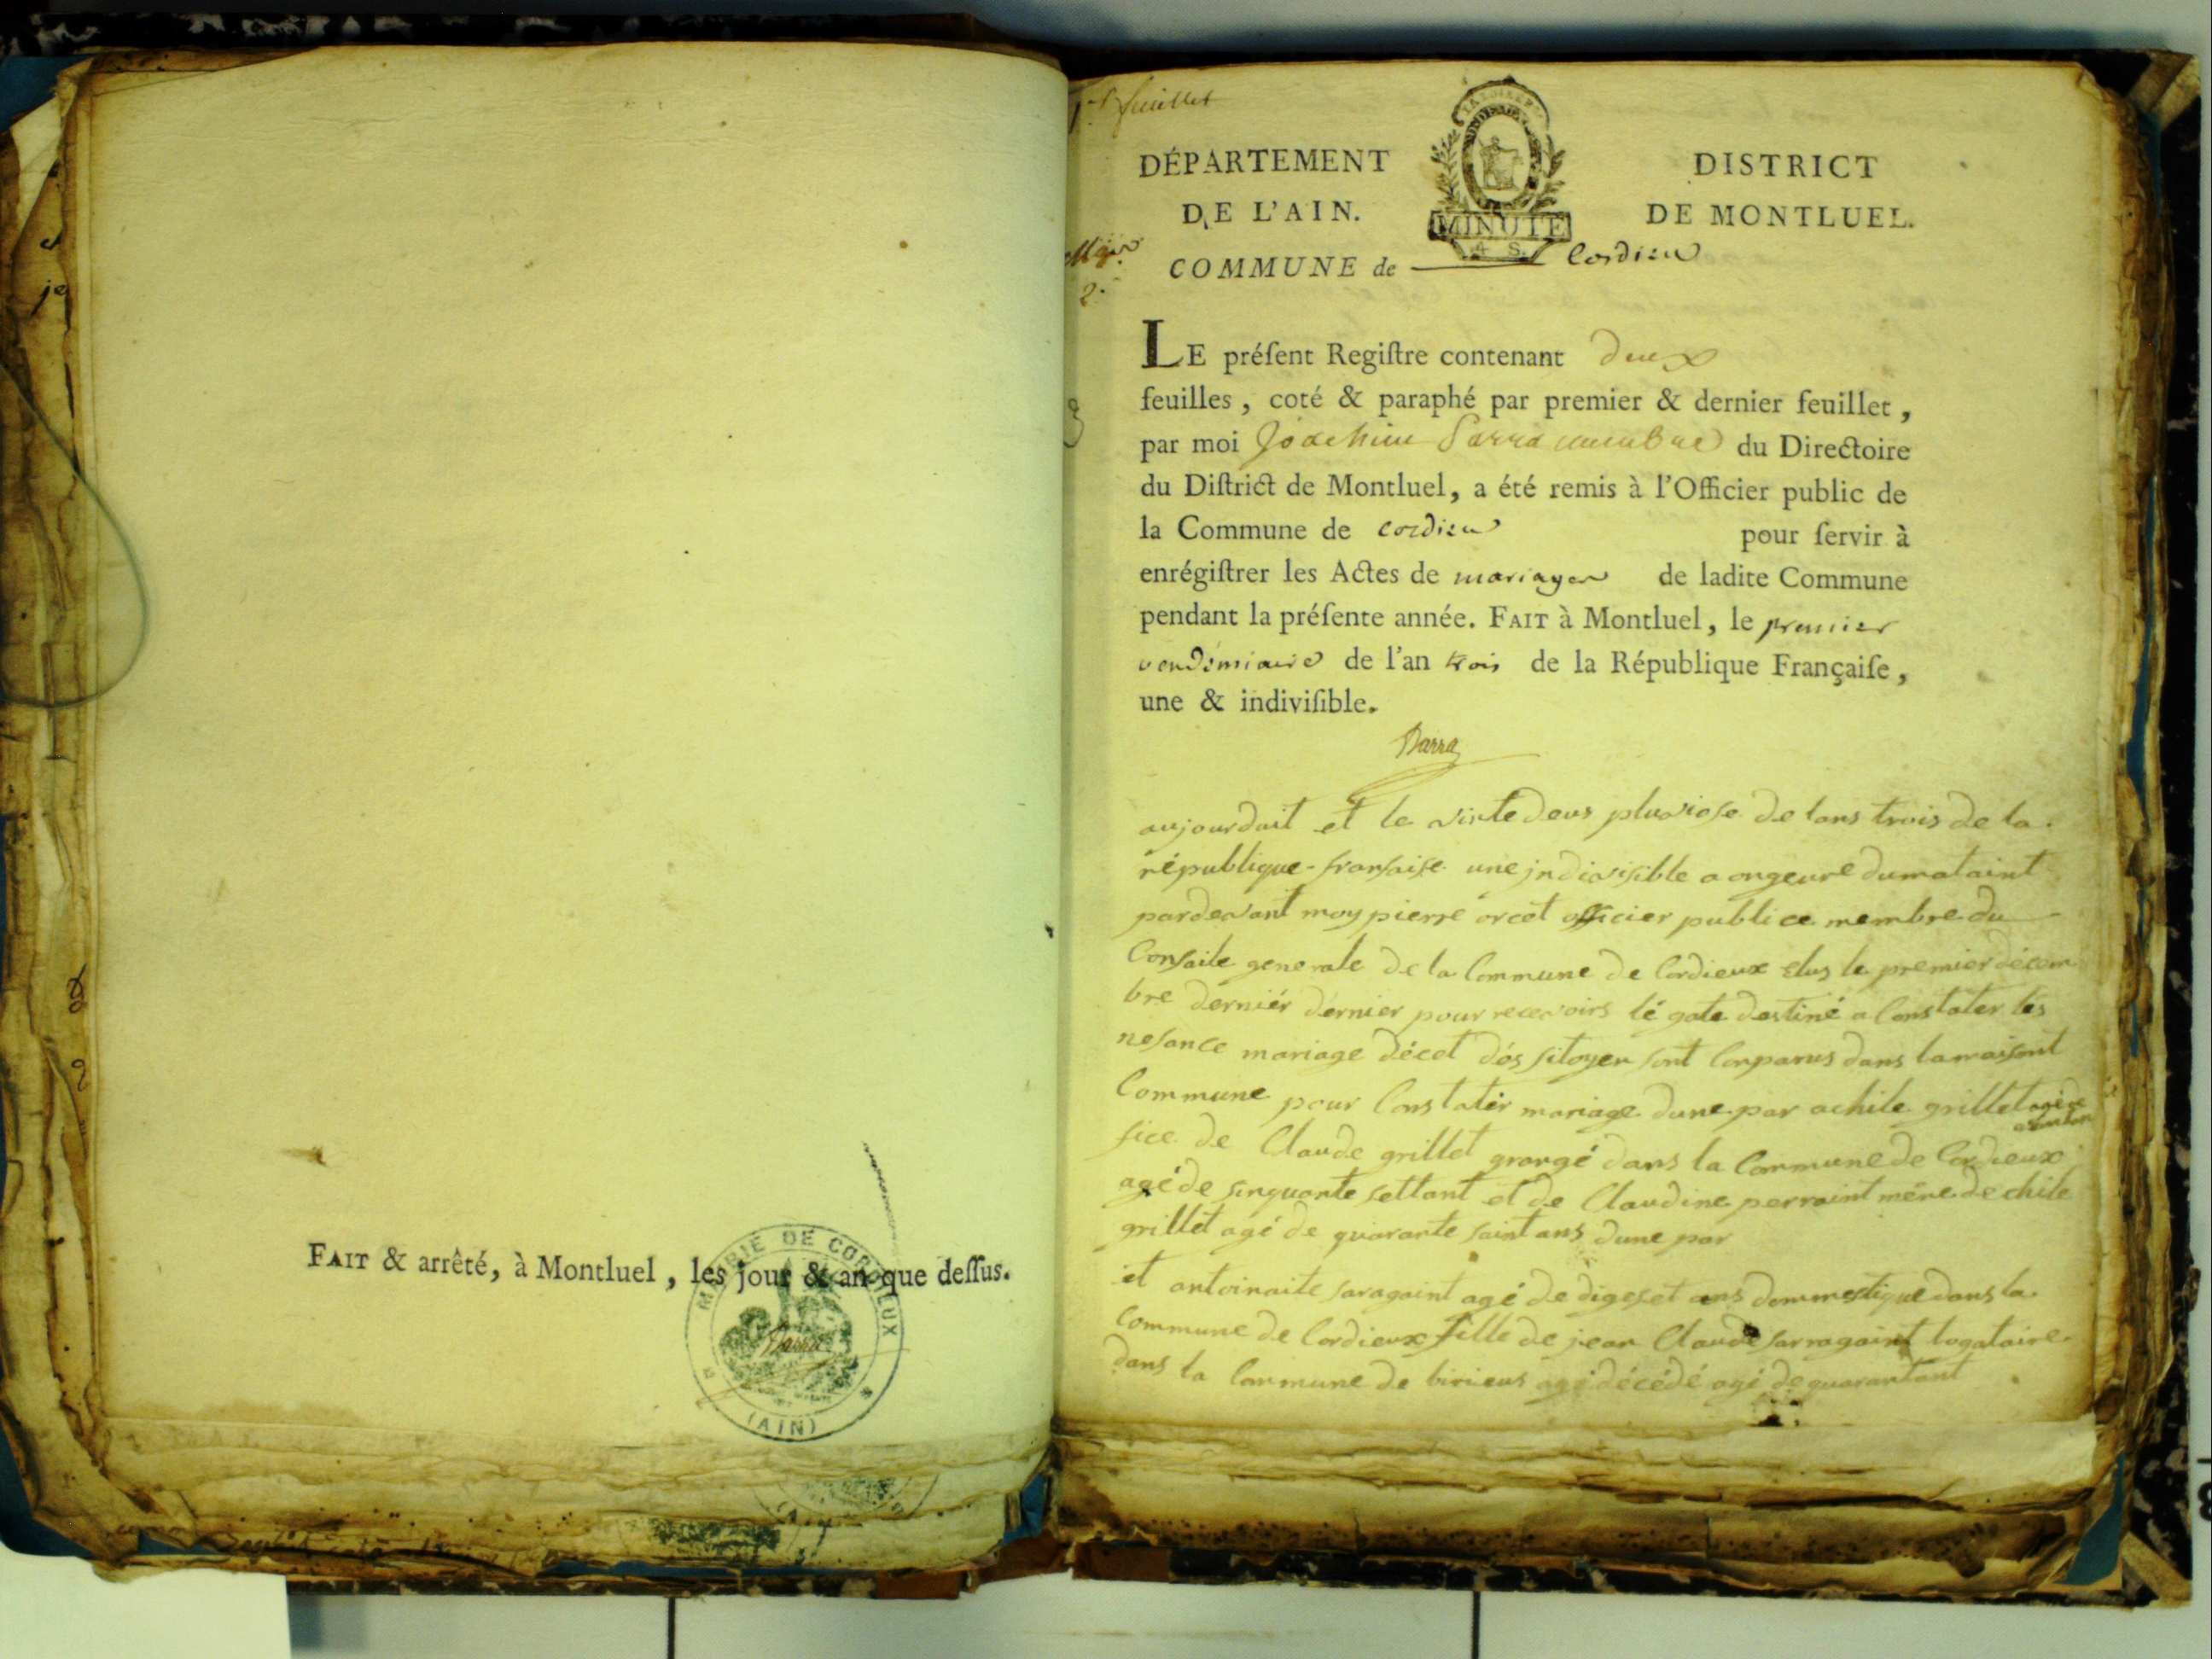 FAIT & arrêté, à Montluel, les jour & an que deſſus.
MAIRIE DE CORDIEUX
Barra
(AIN)
1er feuillet
DÉPARTEMENT
DE L'AIN.
MINUTE
4 S.
DISTRICT
DE MONTLUEL.
COMMUNE de Cordieu
LE préſent Regiſtre contenant deux
feuilles, coté & paraphé par premier & dernier feuillet,
par moi Joachim Barra membre du Directoire
du Diſtrict de Montluel, a été remis à l'Officier public de
la Commune de cordieu pour ſervir à
enrégiſtrer les Actes de mariages de ladite Commune
pendant la préſente année. FAIT à Montluel, le premier
vendémiaire de l'an trois de la République Françaiſe,
une & indiviſible.
Barra
aujourduit et le vinte deus pluviose de lans trois de la
république fransaise une indivisible a ongeure dumataint
pardevant moy pierre orcet officier publice membre du
Consaile generale de la Commune de Cordieux elus le premier décem
bre derniér dernier pour recevoirs lé gate destiné a Constater les
nesance mariage décet dós sitoyen sont Conparus dans lamaisont
Commune pour Constatér mariage dune par achile grillet agé de
fice de Claude grillet grangé dans la Commune de Cordieux
agé de sinquante settant et de Claudine perraint mére de chile
grillet agé de quarante saint ans dune par
et antoinaite saragaint agé de digeset ans dommestique dans la
Commune de Cordieux fille de jean Claude sarragaint logataire
dans la Commune de birieus agé décédé agé de quarantant